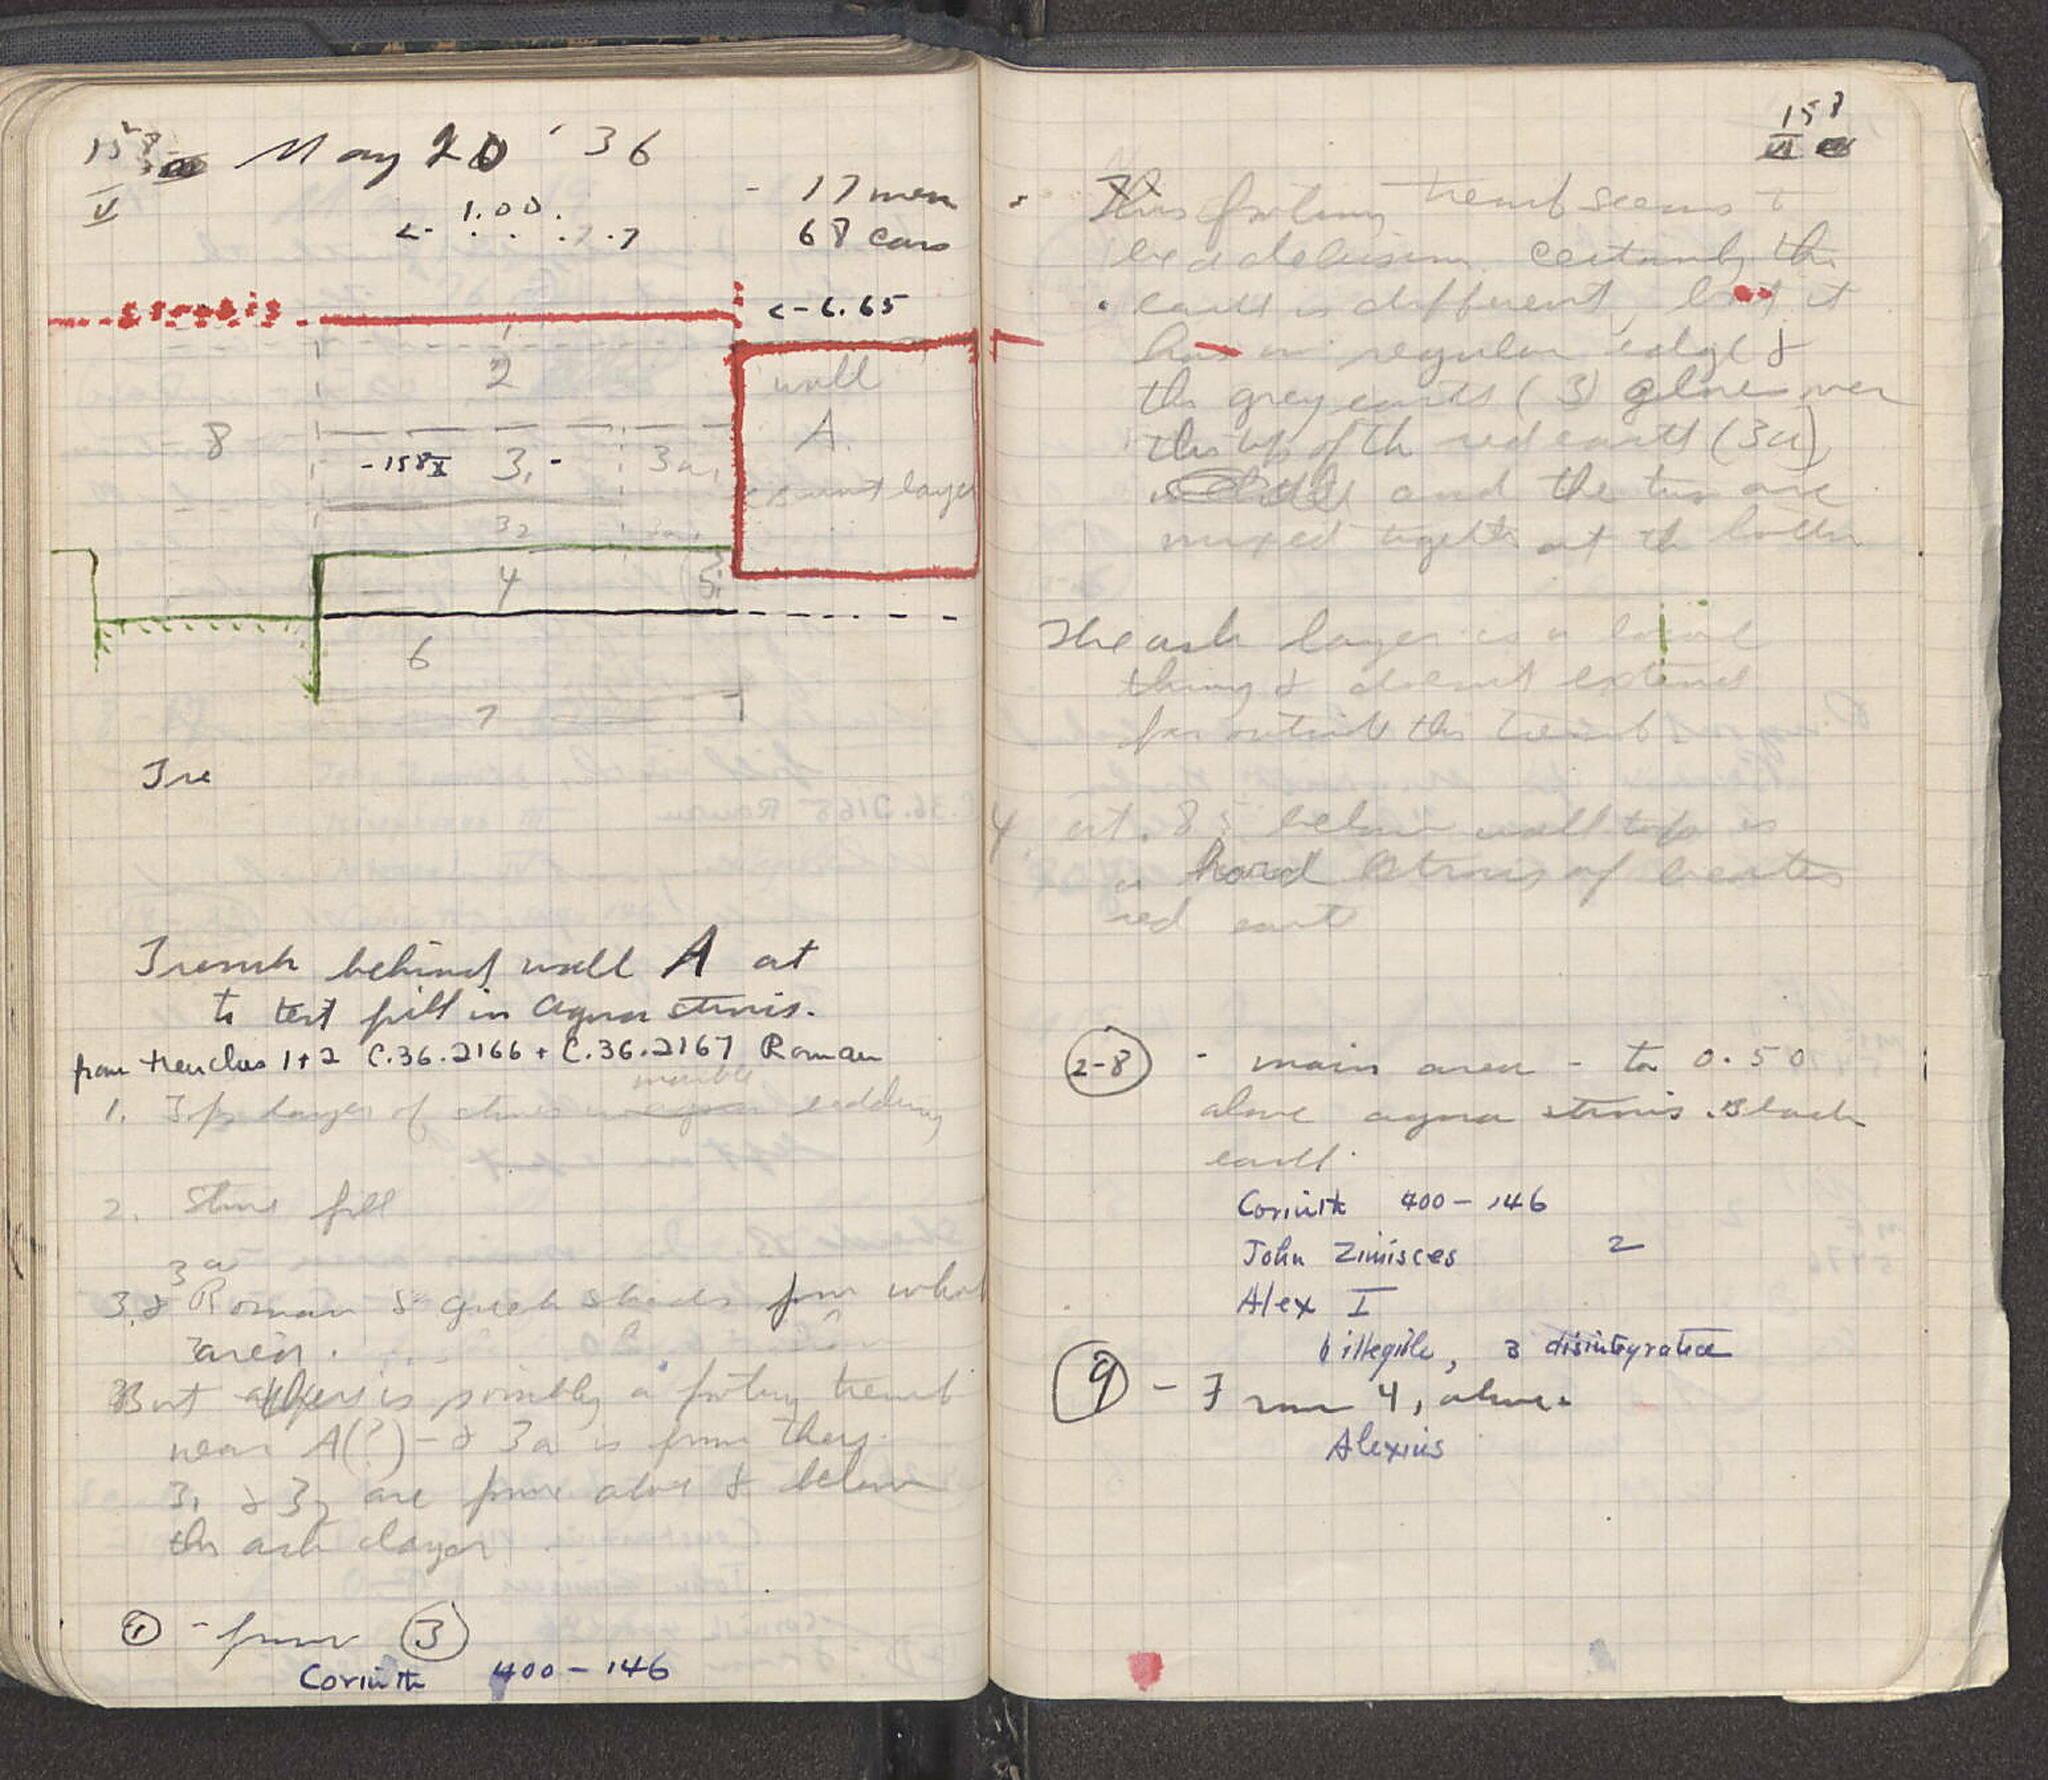 158
V
May 20 '36
- 17 men
68 cars
1.00.
<-6.65
strosis
1
2
wall
8
A.
-158X 3, - 3a,
cement layer
3₂
4
5
6
7
Tre
Trench behind wall A at
to test fill in agora strosis.
from trenches 1+2 C.36.2166 + C.36.2167 Roman
marble
1. Top layer of
2. Stone fill
3a
3.& Roman & greek sherds from whole
area.
But there is possibly a footing trench
near A(?) - & 3a is from there.
3₁ & 3₂ are from above & below
the ash layer
① - from ③
Corinth 400-146
158
VI
This footing trench seems to
be a delusion. Certainly the
earth is different, but it
has no regular edge &
the grey earth (3) goes over
the top of the red earth (3a)
and the two are
mixed together at the bottom
The ash layer is a local
thing & doesn't extend
far outside the trench.
4 at .85 below wall top is
a hard strosis of
red earth
②-8 - main area - to 0.50
above agora strosis. Black
earth.
Corinth 400-146
John Zimisces 2
Alex I
1 illegible, 3 disintegrated
⑨ - 7 4, above.
Alexius